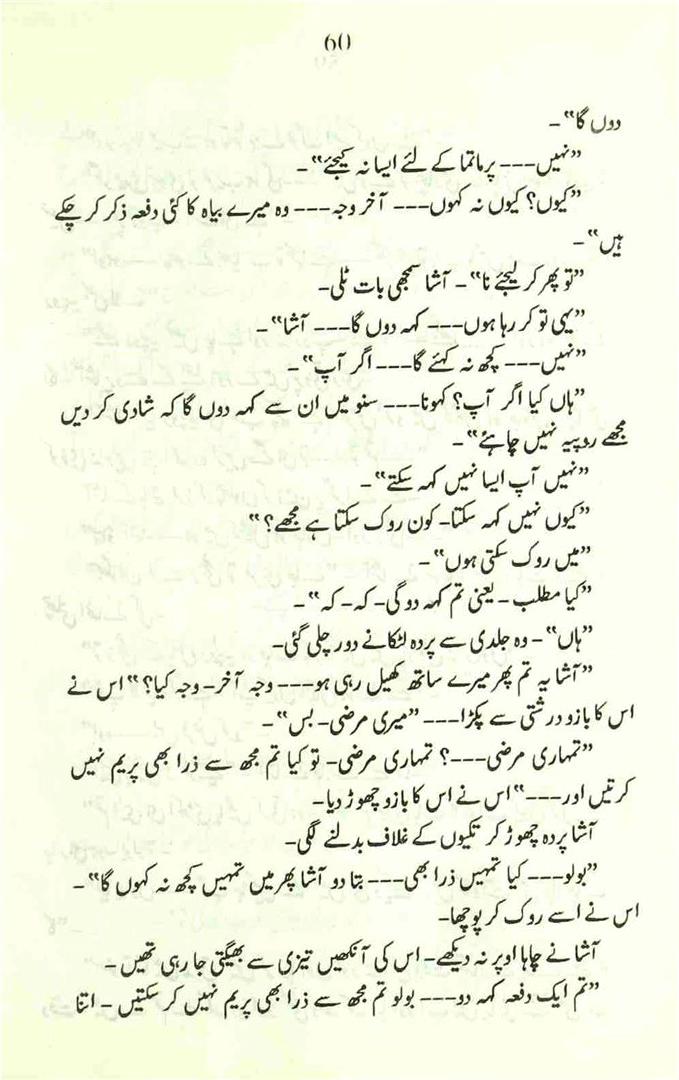 60
دوں گا“۔
”نہیں--- پرماتما کے لئے ایسا نہ کیجئے“۔
”کیوں؟ کیوں نہ کہوں--- آخر وجہ--- وہ میرے بیاہ کا کئی دفعہ ذکر کر چکے
ہیں“۔
”تو پھر کر لیجئے نا“۔ آشا سمجھی بات ٹلی۔
”یہی تو کر رہا ہوں--- کہہ دوں گا--- آشا“۔
”نہیں--- کچھ نہ کہئے گا--- اگر آپ“۔
”ہاں کیا اگر آپ؟ کہونا--- سنو میں ان سے کہہ دوں گا کہ شادی کر دیں
مجھے روپیہ نہیں چاہئے“۔
”نہیں آپ ایسا نہیں کہہ سکتے“۔
”کیوں نہیں کہہ سکتا۔ کون روک سکتا ہے مجھے؟“
”میں روک سکتی ہوں“۔
”کیا مطلب۔ یعنی تم کہہ دو گی۔ کہ۔ کہ“۔
”ہاں“۔ وہ جلدی سے پردہ لٹکانے دور چلی گئی۔
”آشا یہ تم پھر میرے ساتھ کھیل رہی ہو--- وجہ آخر۔ وجہ کیا؟“ اس نے
اس کا بازو درشتی سے پکڑا--- ”میری مرضی۔ بس“۔
”تمہاری مرضی---؟ تمہاری مرضی۔ تو کیا تم مجھ سے ذرا بھی پریم نہیں
کرتیں اور---“ اس نے اس کا بازو چھوڑ دیا۔
آشا پردہ چھوڑ کر تکیوں کے غلاف بدلنے لگی۔
”بولو--- کیا تمہیں ذرا بھی--- بتا دو آشا پھر میں تمہیں کچھ نہ کہوں گا“۔
اس نے اسے روک کر پوچھا۔
آشا نے چاہا اوپر نہ دیکھے۔ اس کی آنکھیں تیزی سے بھیگتی جا رہی تھیں۔
”تم ایک دفعہ کہہ دو--- بولو تم مجھ سے ذرا بھی پریم نہیں کر سکتیں۔ اتنا